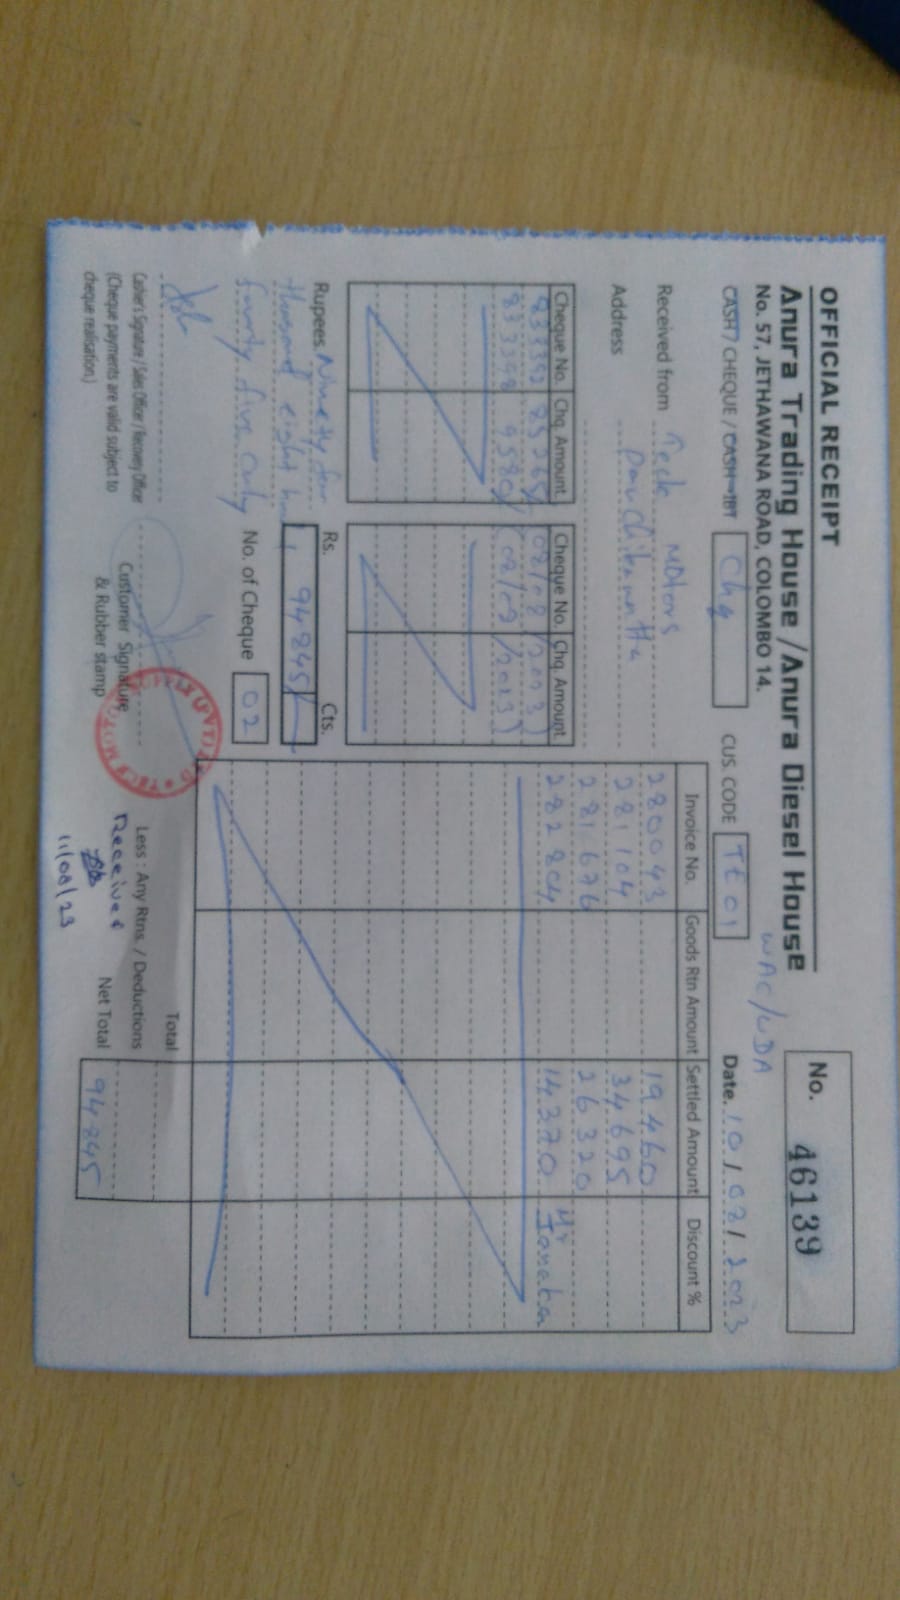 OFFICIAL RECEIPT
Anura Trading House / Anura Diesel House
No. 57, JETHAWANA ROAD, COLOMBO 14.
No. 46139
WAC/WDA
CASH / CHEQUE / CASH IBT Chq
CUS. CODE TE01
Date. 10/08/2023
Received from Tech Motors
Address
Cheque No. Chq. Amount Cheque No. Chq. Amount
833398
Invoice No. Goods Rtn Amount Settled Amount Discount %
280043 19460
281104 34695
281676 26320
282804 14370 Mr Janaka
Rupees Ninety four
thousand eight
fourty five only
Rs. Cts.
94845/
No. of Cheque 02
Total
Less : Any Rtns. / Deductions
Net Total 94845
Cashier's Signature / Sales Officer / Recovery Officer
(Cheque payments are valid subject to
cheque realisation.)
Customer Signature
& Rubber stamp
Received
11/08/23